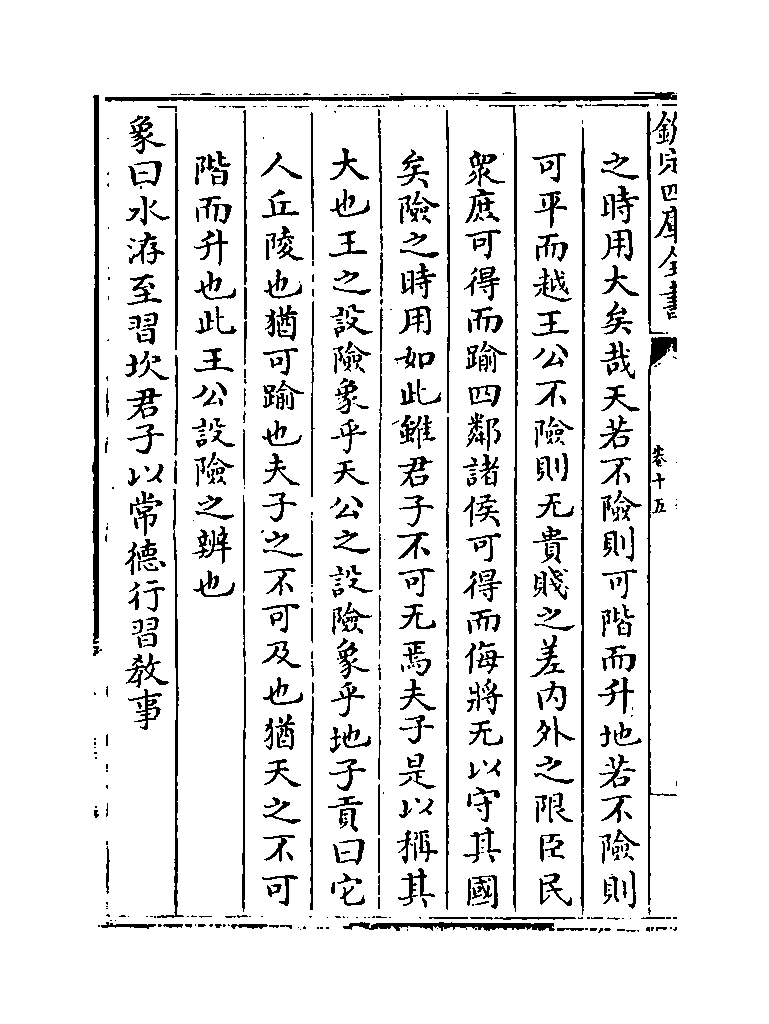 欽定四庫全書
卷十五
之時用大矣哉天若不險則可階而升地若不險則
可平而越王公不險則无貴賤之差内外之限臣民
衆庶可得而踰四鄰諸侯可得而侮將无以守其國
矣險之時用如此雖君子不可无焉夫子是以稱其
大也王之設險象乎天公之設險象乎地子貢曰它
人丘陵也猶可踰也夫子之不可及也猶天之不可
階而升也此王公設險之辨也
象曰水洊至習坎君子以常德行習教事